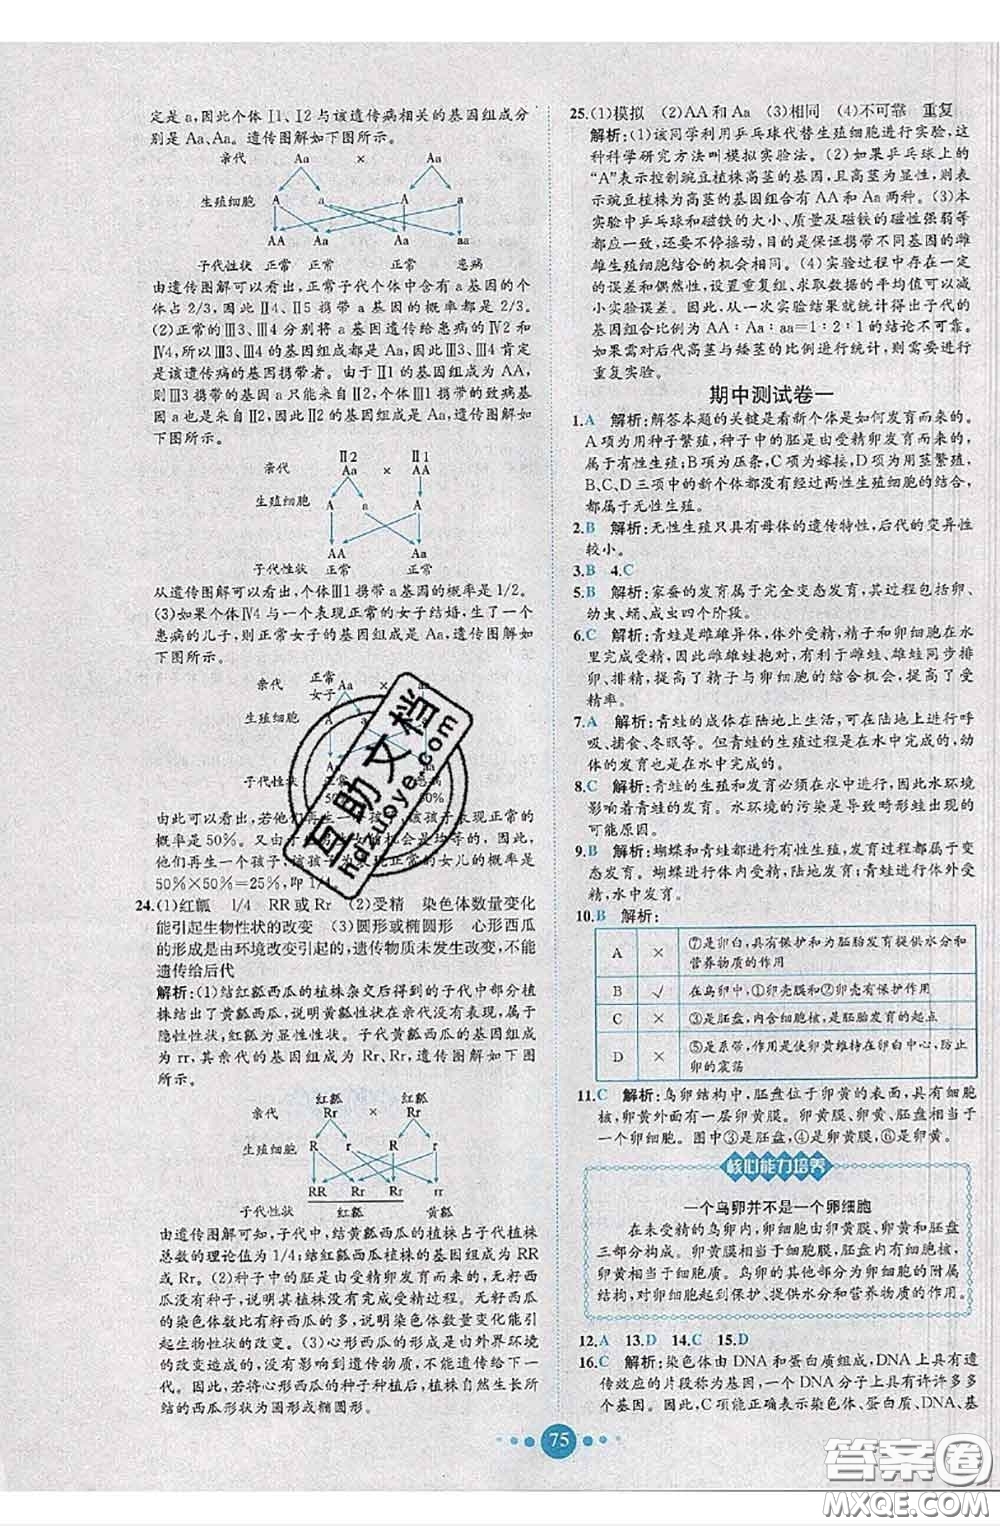 定是 a,因此个体 Ⅰ1、Ⅰ2 与该遗传病相关的基因组成分
别是 Aa、Aa。遗传图解如下图所示。
亲代 Aa × Aa
生殖细胞 A a A a
AA Aa Aa aa
子代性状 正常 正常 正常 患病
由遗传图解可以看出,正常子代个体中含有 a 基因的个
体占 2/3, 因此 Ⅱ4、Ⅱ5 携带 a 基因的概率都是 2/3。
(2)正常的Ⅲ3、Ⅲ4 分别将 a 基因遗传给患病的Ⅳ2 和
Ⅳ4,所以Ⅲ3、Ⅲ4 的基因组成都是 Aa,因此Ⅲ3、Ⅲ4 肯定
是该遗传病的基因携带者。由于Ⅱ1 的基因组成为 AA,
则Ⅲ3 携带的 a 基因只能来自Ⅱ2,个体Ⅲ3 携带的致病基
因 a 也是来自Ⅱ2,因此Ⅱ2 的基因组成是 Aa,遗传图解如
下图所示。
Ⅱ2 Ⅱ1
亲代 Aa × AA
生殖细胞 A a A
AA Aa
子代性状 正常 正常
从遗传图解可以看出,个体Ⅲ1 携带 a 基因的概率是 1/2。
(3)如果个体Ⅳ4 与一个表现正常的女子结婚,生了一个
患病的儿子,则正常女子的基因组成是 Aa,遗传图解如
下图所示。
亲代 正常女子 Aa × aa
生殖细胞
子代性状 正常 患病
50% 50%
由此可以看出,若他们再生一个孩子,该孩子表现正常的
概率是 50%。又由于生男生女的机会是均等的,因此,
他们再生一个孩子,该孩子为表现正常的女儿的概率是
50%×50%=25%,即 1/4。
24.(1)红瓤 1/4 RR 或 Rr (2)受精 染色体数量变化
能引起生物性状的改变 (3)圆形或椭圆形 心形西瓜
的形成是由环境改变引起的,遗传物质未发生改变,不能
遗传给后代
解析:(1)结红瓤西瓜的植株杂交后得到的子代中部分植
株结出了黄瓤西瓜,说明黄瓤性状在亲代没有表现,属于
隐性性状,红瓤为显性性状。子代黄瓤西瓜的基因组成
为 rr,其亲代的基因组成为 Rr、Rr,遗传图解如下图
所示。
红瓤 红瓤
亲代 Rr × Rr
生殖细胞 R r R r
RR Rr Rr rr
子代性状 红瓤 黄瓤
由遗传图解可知,子代中,结黄瓤西瓜的植株占子代植株
总数的理论值为 1/4;结红瓤西瓜植株的基因组成为 RR
或 Rr。(2)种子中的胚是由受精卵发育而来的,无籽西
瓜没有种子,说明其植株没有完成受精过程。无籽西瓜
的染色体数量比有籽西瓜的多,说明染色体数量变化能引
起生物性状的改变。(3)心形西瓜的形成是由外界环境
的变化引起的,没有改变遗传物质,不能遗传给后代。
因此,若将心形西瓜的种子种植后,植株自然生长所
结的西瓜形状为圆形或椭圆形。
25.(1)模拟 (2)AA 和 Aa (3)相同 (4)不可靠 重复
解析:(1)该同学利用乒乓球代替生殖细胞进行实验,这
种科学研究方法叫模拟实验法。(2)如果乒乓球上的
“A”表示控制豌豆植株高茎的基因,且高茎为显性,则表
示豌豆植株为高茎的基因组合有 AA 和 Aa 两种。(3)本
实验中乒乓球和磁铁的大小、质量及磁铁的磁性强弱等
都应一致,还要不停摇动,目的是保证携带不同基因的雌
雄生殖细胞结合的机会相同。(4)实验过程中存在一定
的误差和偶然性,设置重复组、求取数据的平均值可以减
小实验误差。因此,从一次实验结果就统计得出子代的
基因组合比例为 AA∶Aa∶aa=1∶2∶1 的结论不可靠。
如果需对后代高茎与矮茎的比例进行统计,则需要进行
重复实验。
期中测试卷一
1.A 解析:解答本题的关键是看新个体是如何发育而来的。
A 项为用种子繁殖,种子中的胚是由受精卵发育而来的,
属于有性生殖;B 项为压条,C 项为嫁接,D 项为用茎繁殖,
B、C、D 三项中的新个体都没有经过两性生殖细胞的结合,
都属于无性生殖。
2.B 解析:无性生殖只具有母体的遗传特性,后代的变异性
较小。
3.B 4.C
5.B 解析:家蚕的发育属于完全变态发育,其过程包括卵、
幼虫、蛹、成虫四个阶段。
6.C 解析:青蛙是雌雄异体,体外受精,精子和卵细胞在水
里完成受精,因此雌雄蛙抱对,有利于雌蛙、雄蛙同步排
卵、排精,提高了精子与卵细胞的结合机会,提高了受
精率。
7.A 解析:青蛙的成体在陆地上生活,可在陆地上进行呼
吸、捕食、冬眠等。但青蛙的生殖过程是在水中完成的,幼
体的发育也是在水中完成的。
8.C 解析:青蛙的生殖和发育必须在水中进行,因此水环境
影响着青蛙的发育。水环境的污染是导致畸形蛙出现的
可能原因。
9.B 解析:蝴蝶和青蛙都进行有性生殖,发育都属于变态发
育。蝴蝶进行体内受精、陆地发育;青蛙进行体外受精、水
中发育。
10.B 解析:
A × ⑦是卵白,具有保护和为胚胎发育提供水分和
营养物质的作用
B √ 在鸟卵中,①卵壳膜和②卵壳有保护作用
C × ③是胚盘,内含细胞核,是胚胎发育的起点
D × ⑤是系带,作用是使卵黄维持在卵白中心,防止
卵的震荡
11.C 解析:鸟卵结构中,胚盘位于卵黄的表面,具有细胞
核,卵黄外面有一层卵黄膜。卵黄膜、卵黄、胚盘相当于
一个卵细胞。图中③是胚盘,④是卵黄膜,⑥是卵黄。
核心能力培养
一个鸟卵并不是一个卵细胞
在未受精的鸟卵内,卵细胞由卵黄膜、卵黄和胚盘
三部分构成。卵黄膜相当于细胞膜,胚盘内有细胞核,
卵黄相当于细胞质。鸟卵的其他部分为卵细胞的附属
结构,对卵细胞起到保护、提供水分和营养物质的作用。
12.A 13.D 14.C 15.D
16.C 解析:染色体由 DNA 和蛋白质组成,DNA 上具有遗
传效应的片段称为基因,一个 DNA 分子上具有许许多多
个基因。因此,C 项能正确表示染色体、蛋白质、DNA、基
75
互助文档
hdzuoye.com
答案圈
MXQE.COM